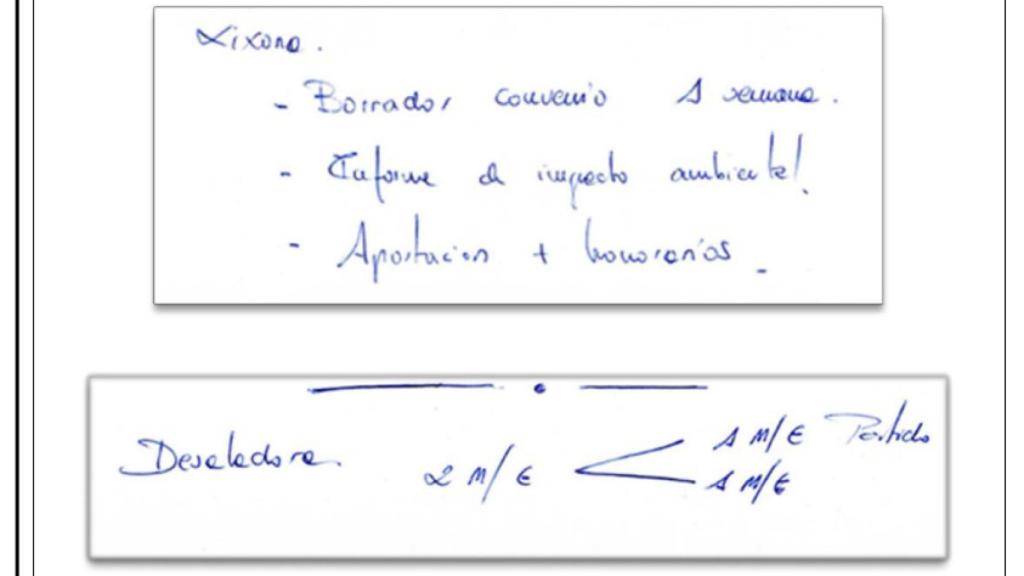 Xixona.
- Borrador convenio 1 semana.
- Informe de impacto ambiental.
- Aportacion + honorarios.
Desaladora. 2 M/€ < 1 M/€ Partido
1 M/€